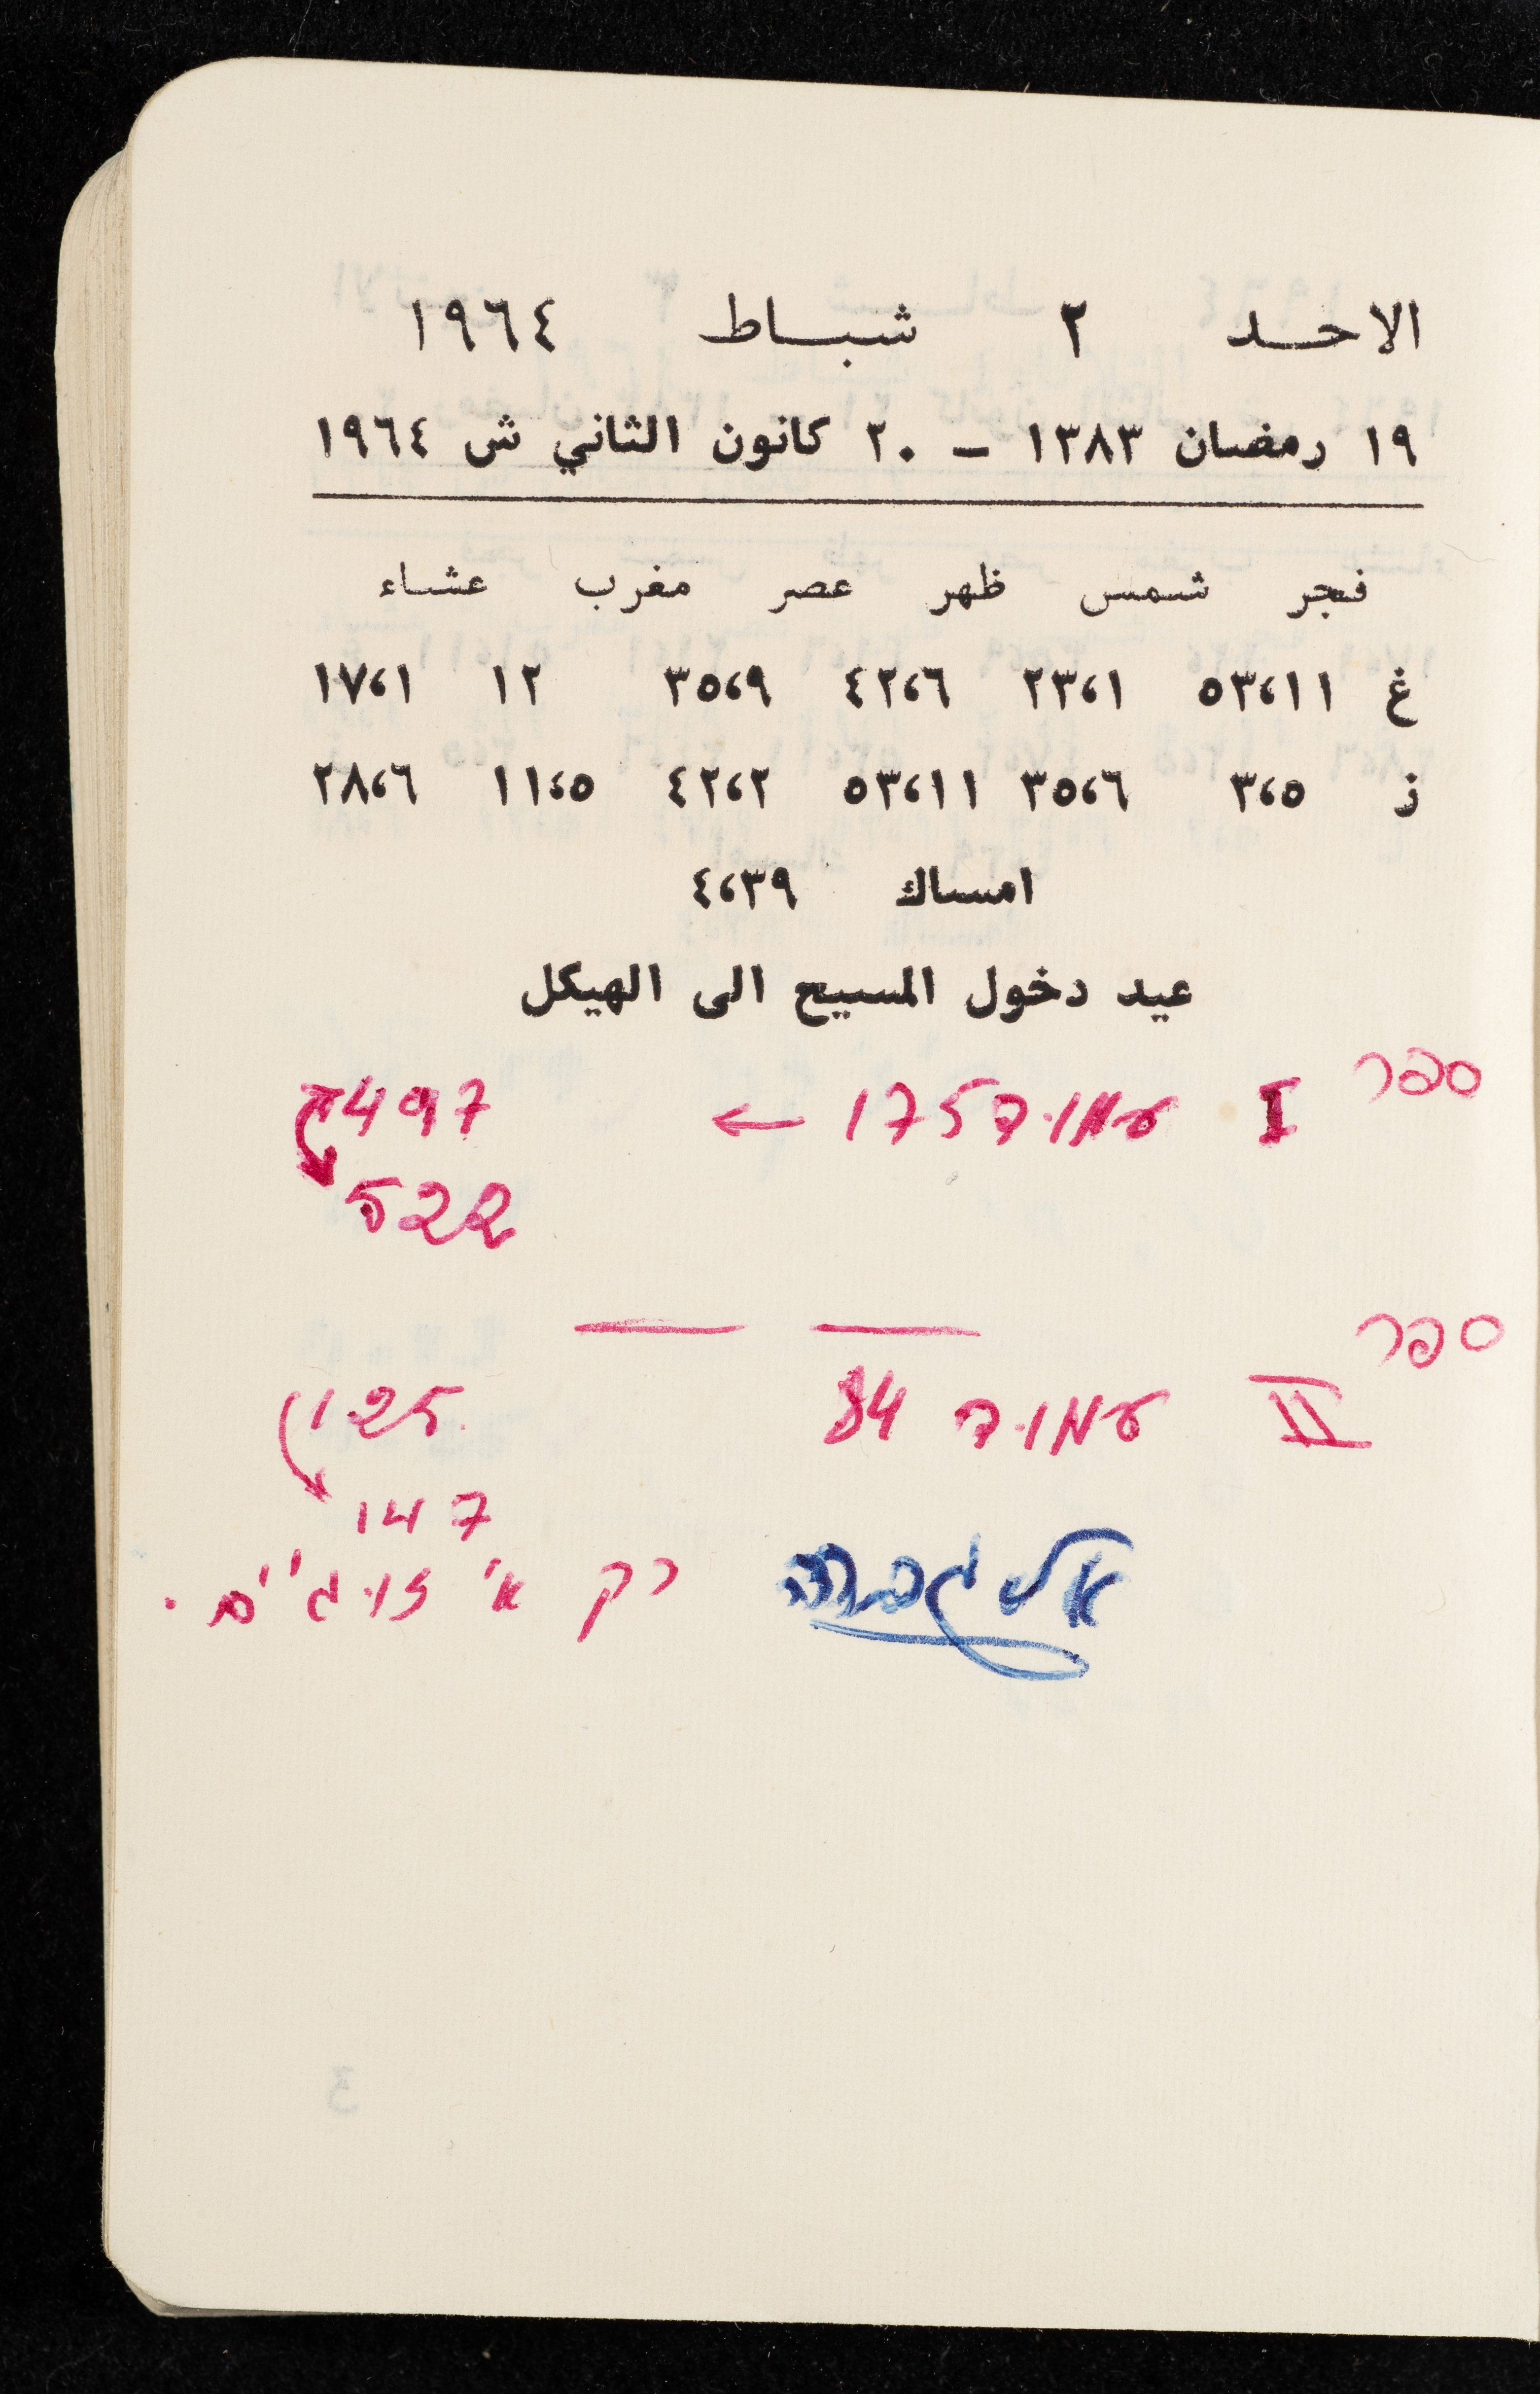 الاحد ٢ شباط ١٩٦٤
١٩ رمضان ١٣٨٣ – ٢٠ كانون الثاني ش ١٩٦٤
فجر شمس ظهر عصر مغرب عشاء
غ ٥٣،١١ ٢٣،١ ٤٢،٦ ٣٥،٩ ١٢ ١٧،١
ز ٣،٥ ٣٥،٦ ٥٣،١١ ٤٢،٢ ١١،٥ ٢٨،٦
امساك ٤،٣٩
عيد دخول المسيح الى الهيكل
ספר I עמוד 175 ← 497
522
ספר II עמוד 84 125
147
אלגברה רק א' זוגיים.